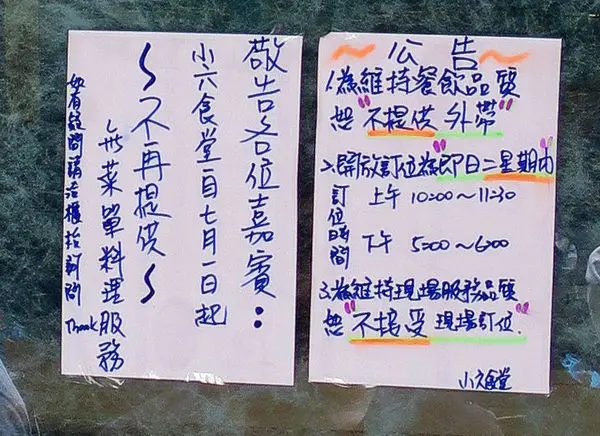 敬告各位嘉賓：
小六食堂自七月1日起
～不再提供～
無菜單料理服務
如有疑問請洽櫃抬詢問 Thank
～公告～
1.為維持餐飲品質
恕"不提供外帶"
2.開放訂位為"即日二星期內"
訂位時間
上午 10:00～11:30
下午 5:00～6:00
3.為維持現場服務品質
恕"不接受現場訂位".
小六食堂